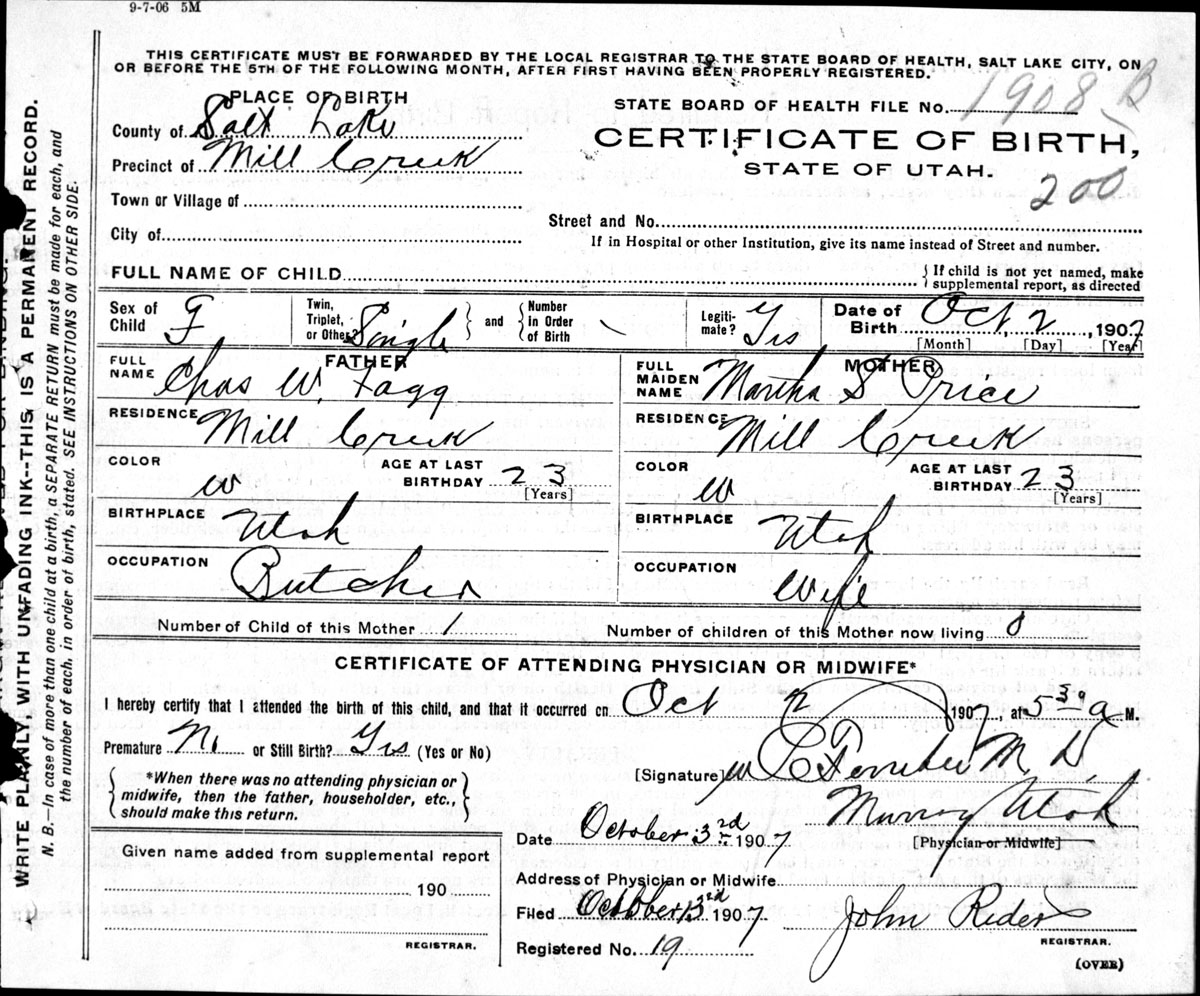 9-7-06 5M
THIS CERTIFICATE MUST BE FORWARDED BY THE LOCAL REGISTRAR TO THE STATE BOARD OF HEALTH, SALT LAKE CITY, ON
OR BEFORE THE 5TH OF THE FOLLOWING MONTH, AFTER FIRST HAVING BEEN PROPERLY REGISTERED.
PLACE OF BIRTH
STATE BOARD OF HEALTH FILE No. 1908 B
County of Salt Lake
CERTIFICATE OF BIRTH,
Precinct of Mill Creek
STATE OF UTAH.
200
Town or Village of
Street and No.
City of
If in Hospital or other Institution, give its name instead of Street and number.
FULL NAME OF CHILD
If child is not yet named, make
supplemental report, as directed
Sex of Child F
Twin, Triplet, or Other? Single and Number in Order of Birth
Legiti-mate? Yes
Date of Birth Oct 2, 1907
[Month] [Day] [Year]
FATHER
FULL NAME Chas W. Fagg
MOTHER
FULL MAIDEN NAME Martha S Price
RESIDENCE Mill Creek
RESIDENCE Mill Creek
COLOR W AGE AT LAST BIRTHDAY 23 [Years]
COLOR W AGE AT LAST BIRTHDAY 23 [Years]
BIRTHPLACE Utah
BIRTHPLACE Utah
OCCUPATION Butcher
OCCUPATION Wife
Number of Child of this Mother 1
Number of children of this Mother now living 0
CERTIFICATE OF ATTENDING PHYSICIAN OR MIDWIFE*
I hereby certify that I attended the birth of this child, and that it occurred on Oct 2 1907, at 3 30 a M.
Premature No or Still Birth? Yes (Yes or No)
*When there was no attending physician or
midwife, then the father, householder, etc.,
should make this return.
[Signature] M. D.
Murray Utah
[Physician or Midwife]
Date October 3rd 1907
Given name added from supplemental report
190
REGISTRAR.
Address of Physician or Midwife
Filed October 3rd 1907
John Rider
REGISTRAR.
Registered No. 19
(OVER)
WRITE PLAINLY, WITH UNFADING INK--THIS IS A PERMANENT RECORD.
N. B.—In case of more than one child at a birth, a SEPARATE RETURN must be made for each, and
the number of each, in order of birth, stated. SEE INSTRUCTIONS ON OTHER SIDE.